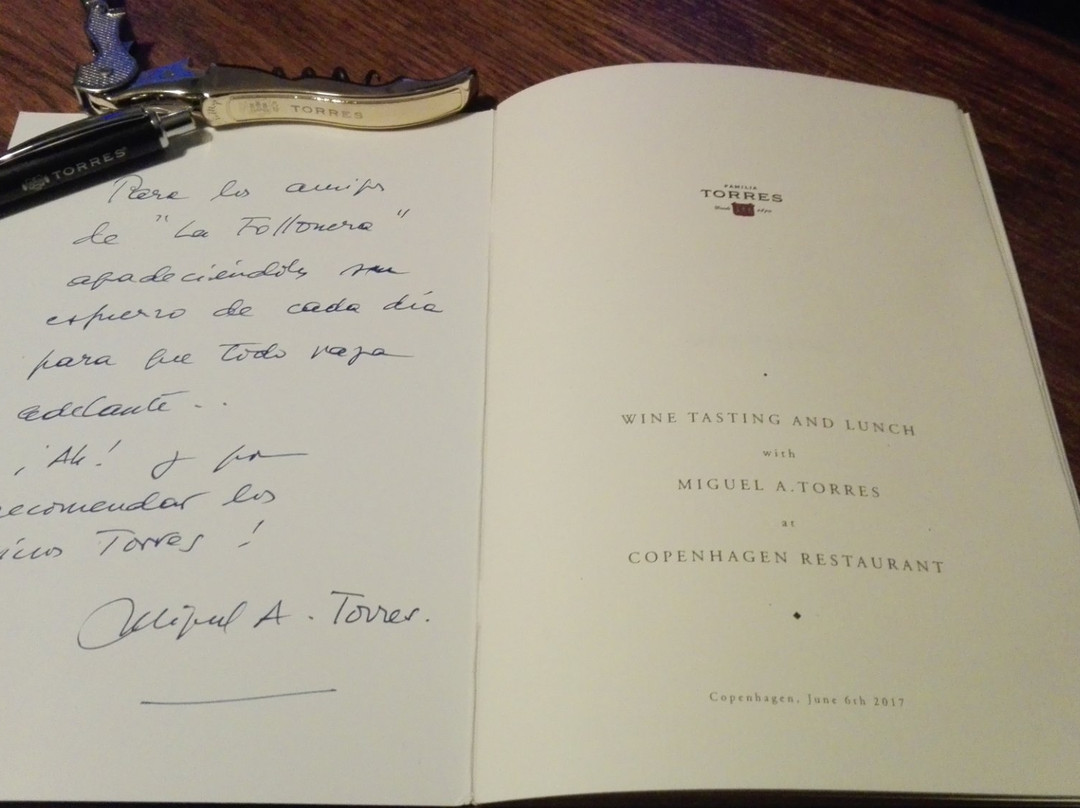 TORRES
TORRES
Para los amigos
de "La Follonera"
agradeciéndoles su
esfuerzo de cada día
para que todo vaya
adelante..
¡Ah! y por
recomendar los
vinos Torres!
Miguel A. Torres.
FAMILIA
TORRES
Desde 1870
WINE TASTING AND LUNCH
with
MIGUEL A.TORRES
at
COPENHAGEN RESTAURANT
Copenhagen, June 6th 2017